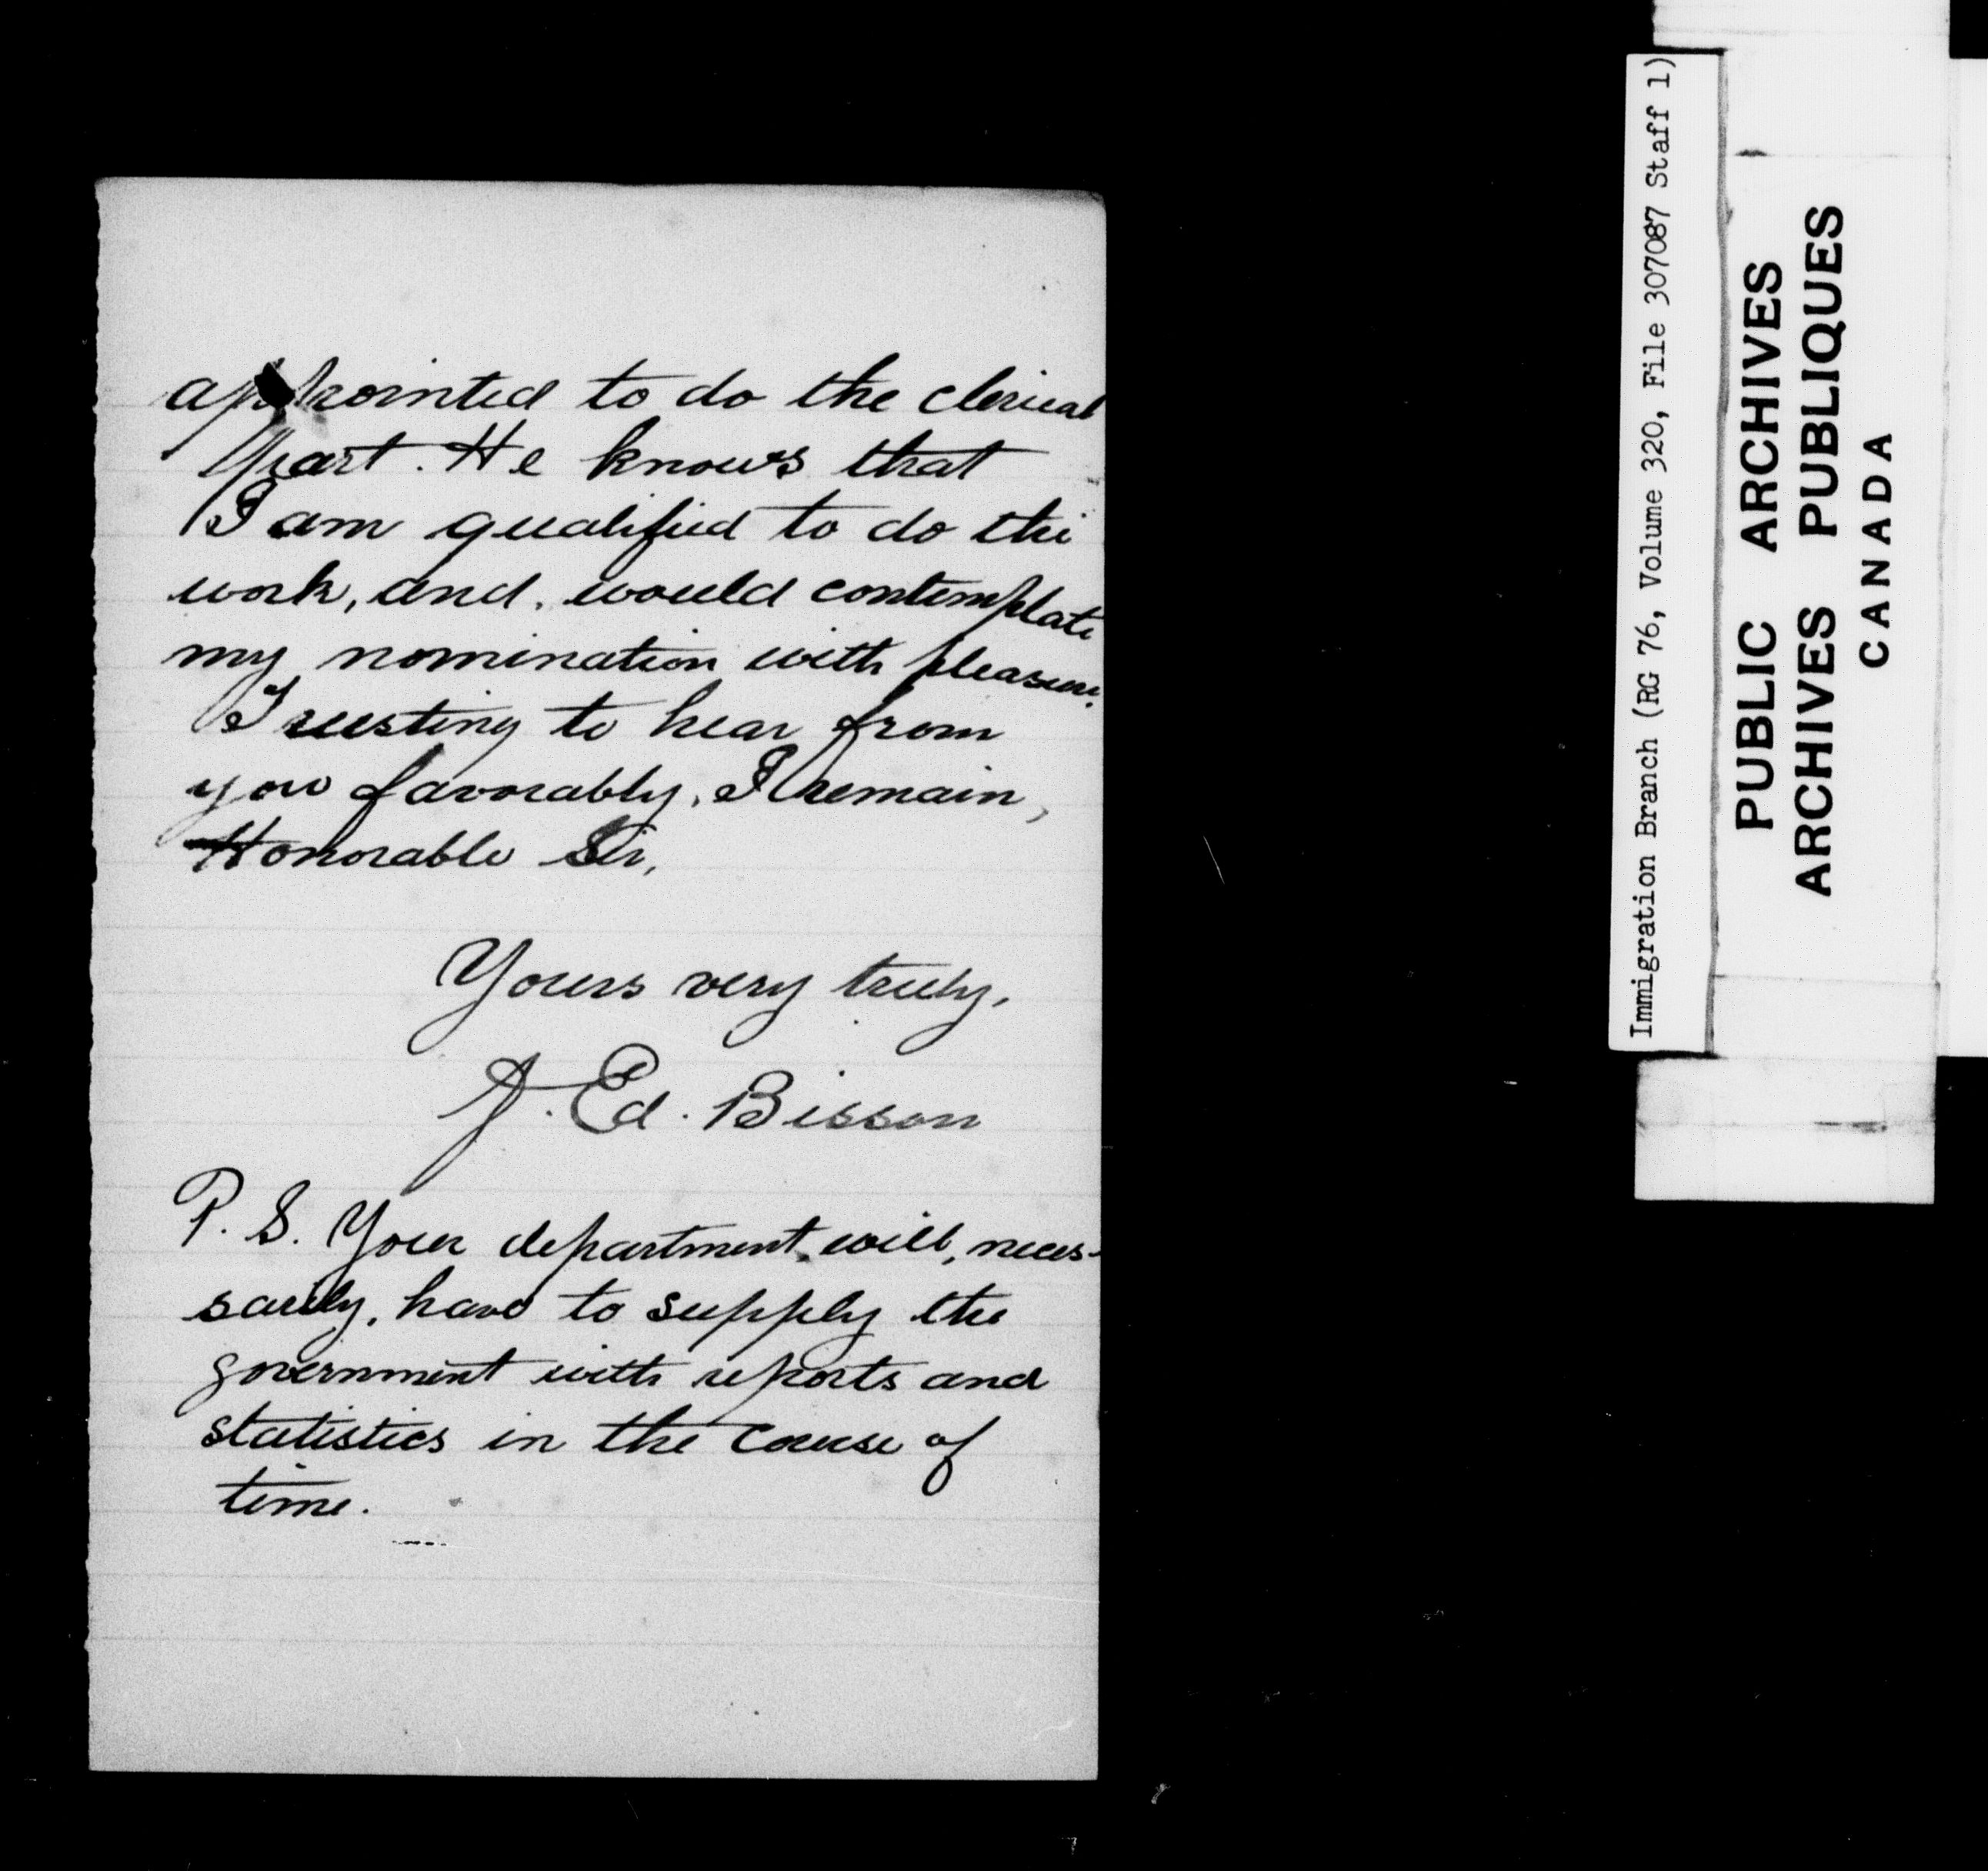 appointed to do the clerical
part. He knows that
I am qualified to do the
work, and, would contemplate
my nomination with pleasure.
Trusting to hear from
you favorably, I remain,
Honorable Sir,
Yours very truly,
J. Ed. Bisson
P. S. Your department, will, neces-
sarily, have to supply the
government with reports and
statistics in the course of
time.
Immigration Branch (RG 76, Volume 320, File 307087 Staff 1)
PUBLIC ARCHIVES
ARCHIVES PUBLIQUES
CANADA